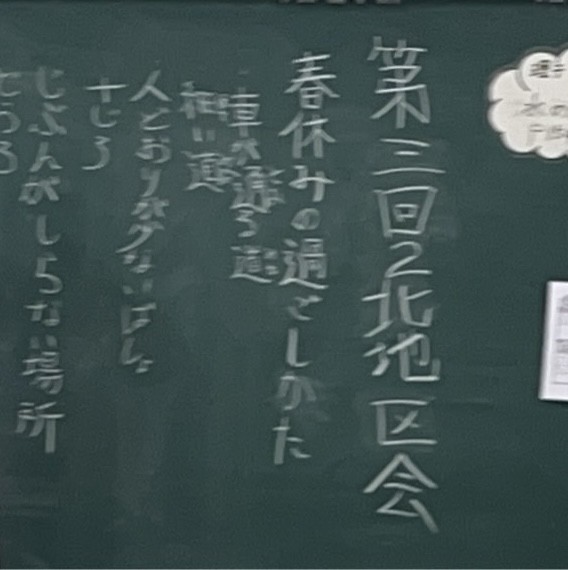 第三回2北地区会
春休みの過ごしかた
・車が通る道
細い道
人どおりが少ないばしょ
十じろ
じぶんがしらない場所